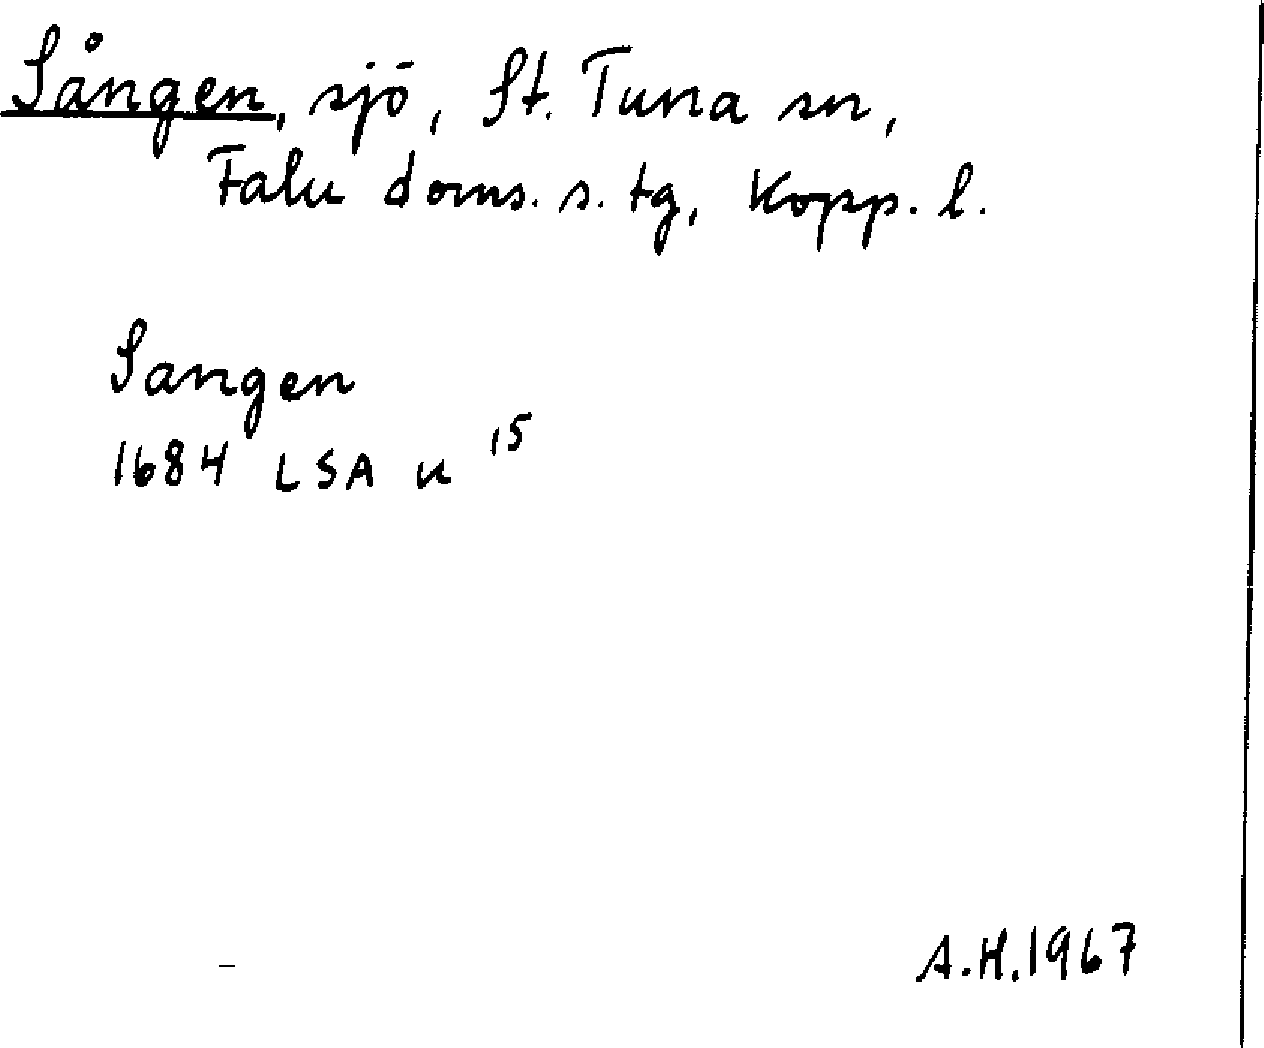 Sången, sjö, St. Tuna sn,
Falu doms. s. tg, Kopp. l.
Sangen
1684 LSA u 15
A.H. 1967